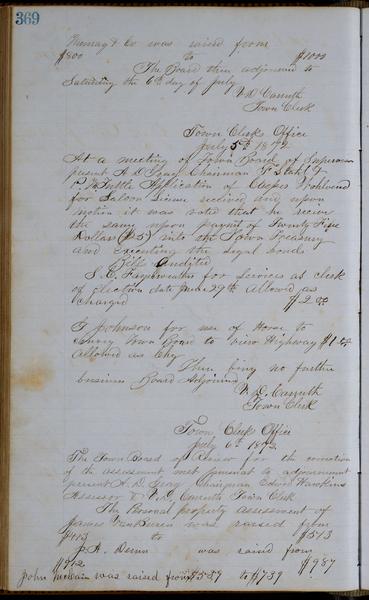 369
& Co was raised from
$800 to $1000
The Board then adjourned to
Saturday the 6th day of July
Town Clerk
Town Clerks Office
July 5th 1872
At a meeting of Town Board of Supervisors
present A. D. Gray Chairman F. Stahl &
P. W. Tuttle Application of Casper
for Saloon License received and upon
motion it was voted that he receive
the same upon payment of Twenty Five
Dollars ($25) into the Town Treasury
and executing the legal bond
Bill Audited
for services as clerk
of election date June 29th allowed as
charged $2.00
Johnson for use of Horse to
Town Board to view Highway
allowed as chg
There being no further
business Board Adjourned
Town Clerk
Town Clerk Office
July 6th 1872
The Town Board of Review for the correction
of the assessment met pursuant to adjournment
present A. D. Gray Chairman Edwin Hawkins
Assessor & Town Clerk
The Personal property assessment of
James Van Buren was raised from
$413 to $513
was raised from
$987
John was raised from $539 to $739